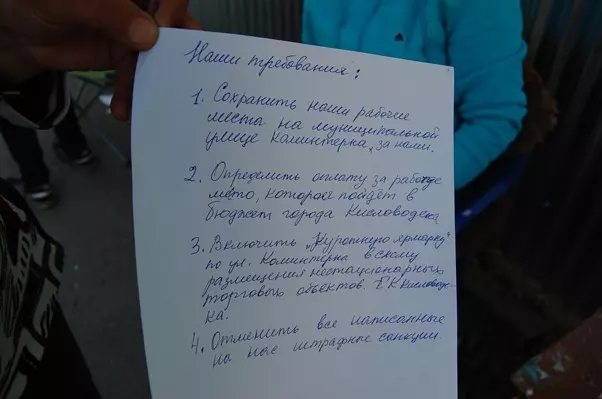 Наши требования:
1. Сохранить наши рабочие
места на муниципальной
улице Коминтерна „за нами.
2. Определить оплату за рабочее
место, которое пойдёт в
бюджет города Кисловодска
3. Включить „Курортную ярмарку"
по ул. Коминтерна в схему
размещения нестационарных
торговых объектов. Г-К Кисловодс-
ка.
4. Отменить все написанные
на нас штрафные санкции.